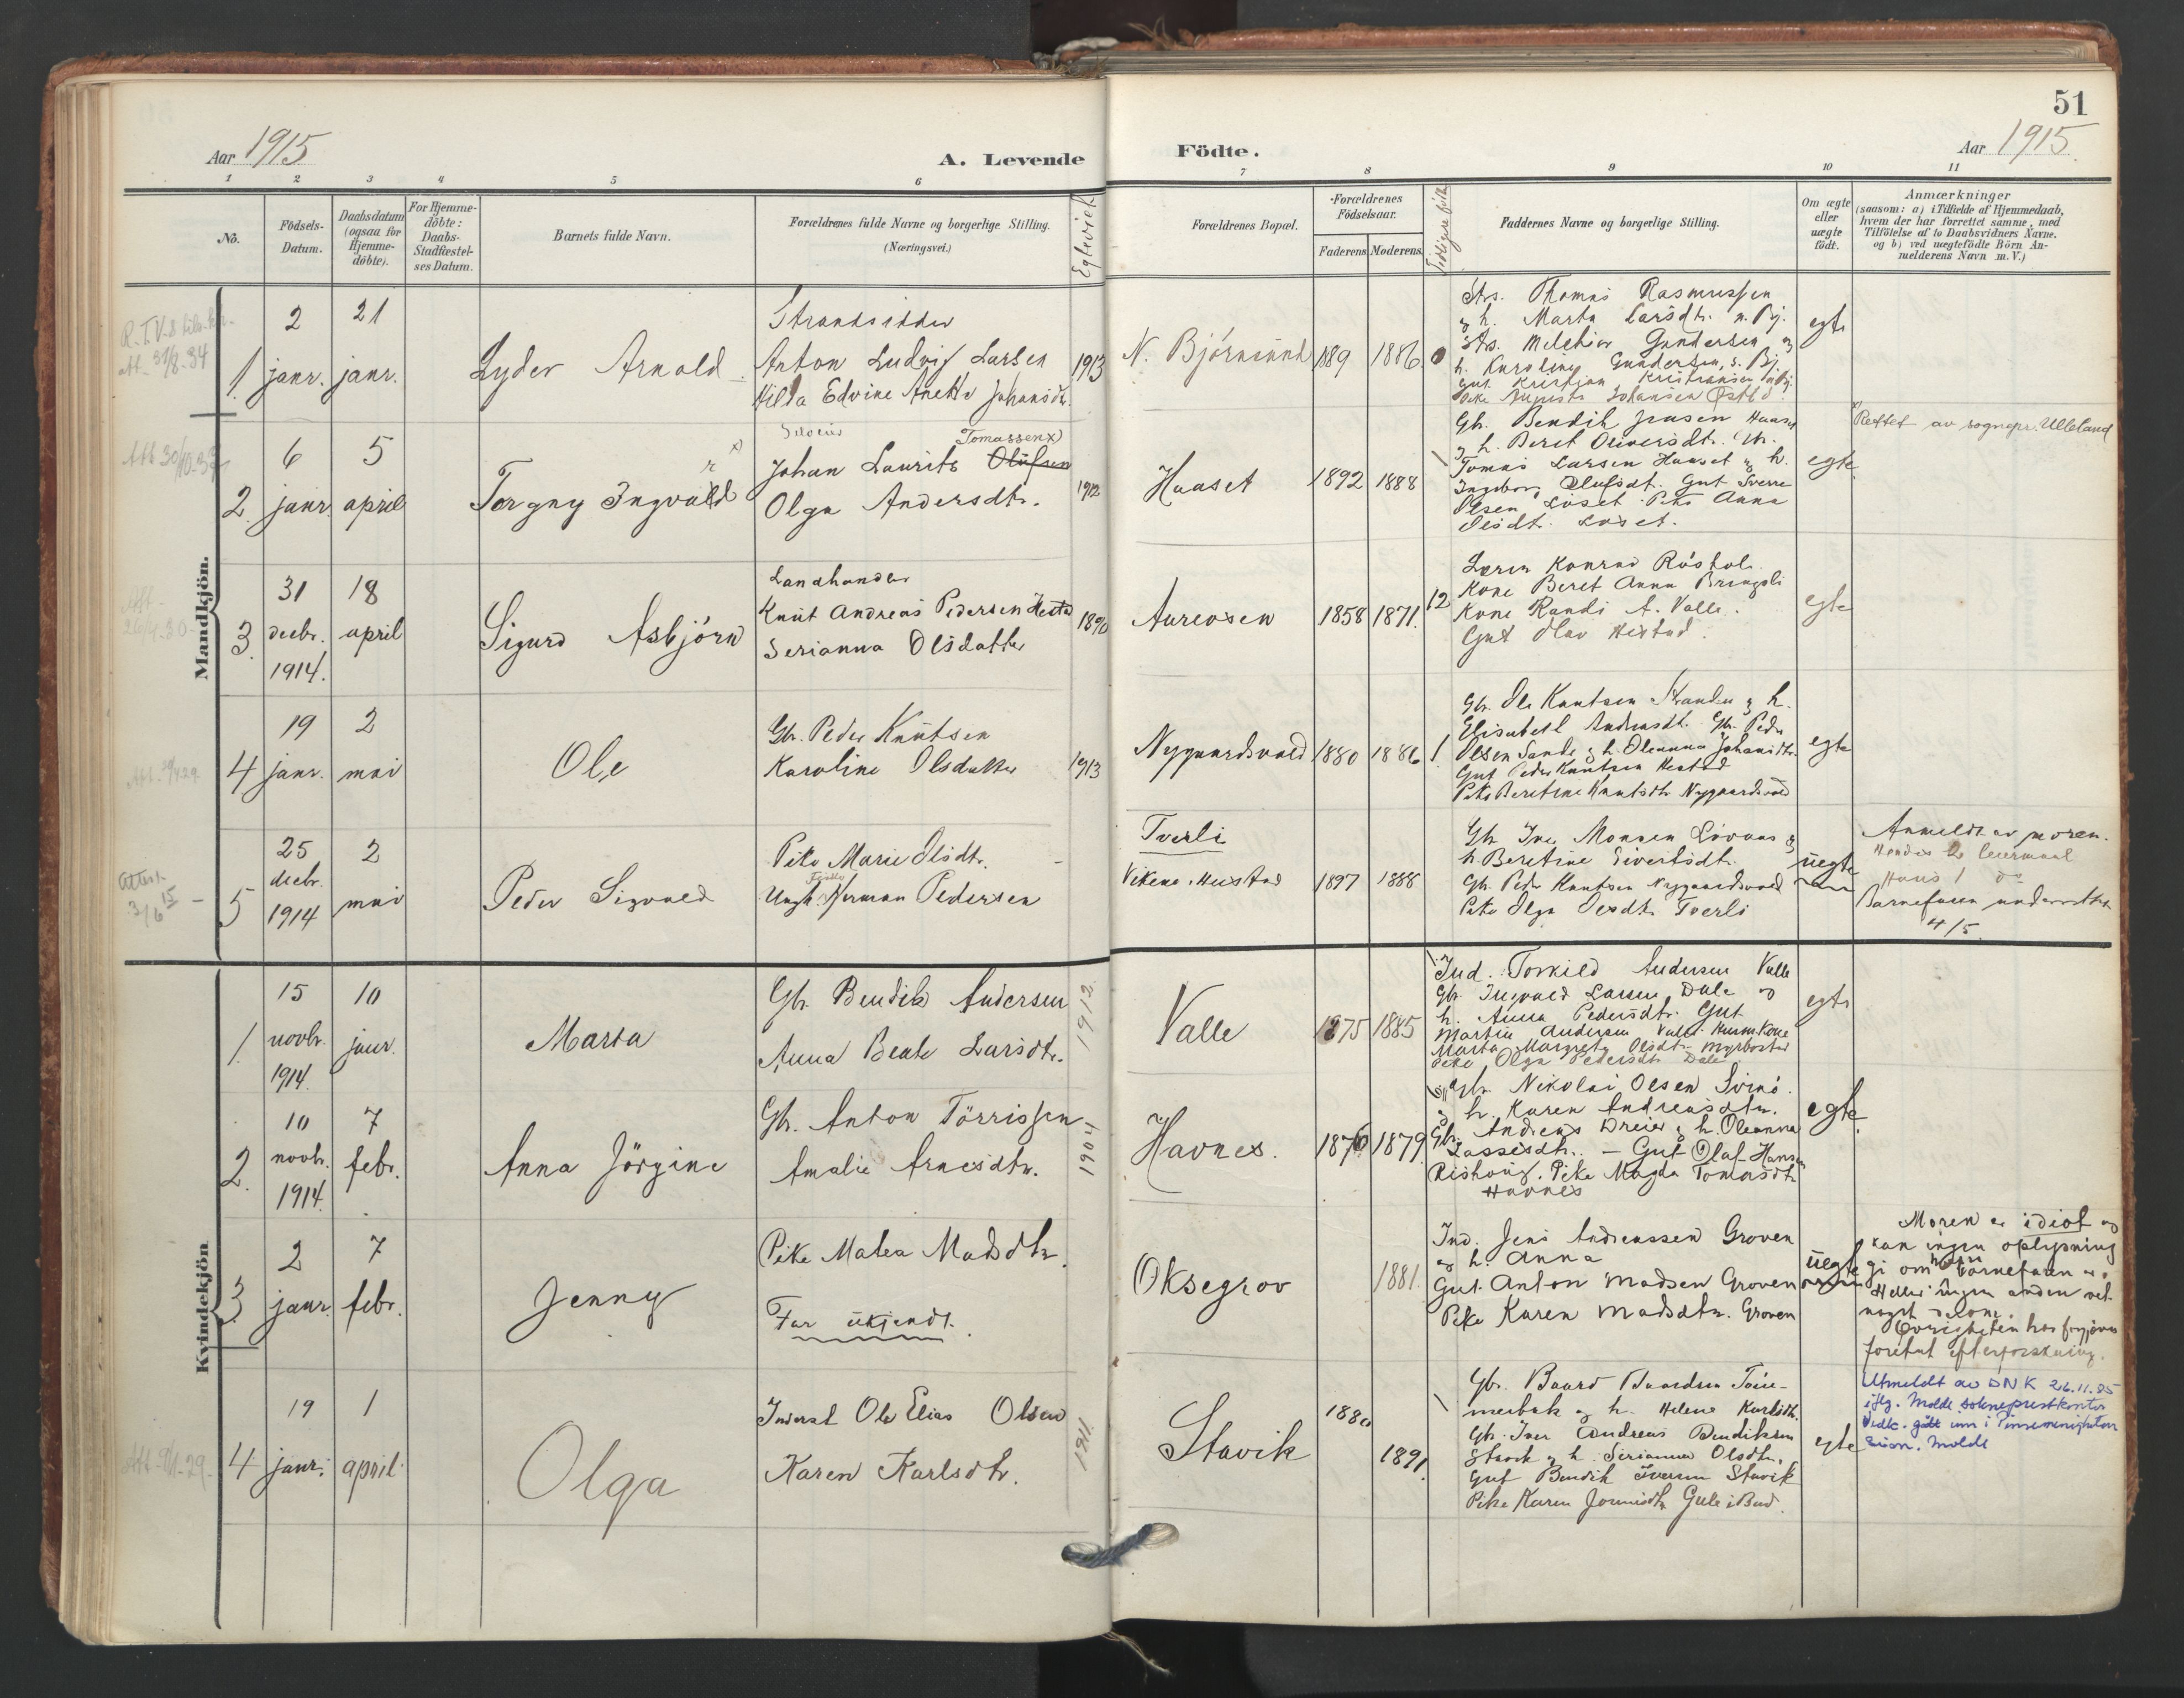 51
Aar 1915
A. Levende
Födte.
Aar 1915.
1 2 3 4 5 6 7 8 9 10 11
No.
Födsels-
Datum.
Daabsdatum
(ogsaa for
Hjemme-
döbte).
For Hjemme-
döbte:
Daabs-
Stadfæstel-
ses Datum.
Barnets fulde Navn.
Forældrenes fulde Navne og borgerlige Stilling.
(Næringsvei.)
Egteviet
Forældrenes Bopæl.
Forældrenes
Födselsaar.
Faderens Moderens
Faddernes Navne og borgerlige Stilling.
Om ægte
eller
uægte
födt.
Anmærkninger
(saasom: a) i Tilfælde af Hjemmedaab,
hvem der har forrettet samme, med
Tilföielse af to Daabsvidners Navne.
og b) ved uægtefödte Börn An-
melderens Navn m. V.)
Mandkjön.
1.
2 janr.
21 janr.
Lyder Arnold
Strandsidder
Anton Ludvig Larsen
Hilda Edvine Anette Johansdtr.
1913
N. Björnsund
1889 1886. 0
Strs. Thomas Rasmussen
og h. Marta Larsdtr. n. Bj.
Strs. Melchior Gundersen og
h. Karoline Gundersen, s. Bj.
Gut Kristjan Kristiansen
Pike Augusta Johansen
egte
2.
6 janr.
5 april
Torgny Ingvald
Tomassen x)
Johan Laurits Olufsen
Olga Andersdtr.
1912
Haaset
1892 1888 1
Gbr. Bendik Jensen Haaset
og h. Beret Oliversdtr.
Tomas Larsen Haaset og h.
Ingeborg Olufsdt. Gut Sverre
Olsen Löset Pike Anna
Olsdt. Löset.
egte
x) Rettet av sognepr. Ulleland
3.
31 decbr. 1914.
18 april
Sigurd Asbjörn
Landhandler
Knut Andreas Pedersen Hestad
Serianna Olsdatter
1890
Aureosen
1858 1871. 12
Kone Beret Anna Bringsli
Kone Randi A. Valle.
Gut Olav Hestad.
egte
4
19 janr.
2 mai
Ole
Gbr. Peder Knutsen
Karoline Olsdatter
1913
Nygaardsvold
1880 1886 1
Gbr. Ole Knutsen Stranden og h.
Elisabeth Andreasdt. Gbr. Peder
Olsen Sande og h. Oleanna Johansdtr.
Gut Peder Knutsen Hestad
Pike Beretine Knutsdtr. Nygaardsvold
egte
Attest.
3/6 15
5
25 decbr. 1914
2 mai
Peder Sigvald
Pike Marie Olsdtr.
Ungk. Herman Pedersen
Tverli
Vikene, Hustad
1897 1888
Gbr. Iver Monsen Lövaas og
h. Beretine Sivertsdtr.
Gbr. Peder Knutsen Nygaardsvold
Pike Olga Olsdtr. Tverli
uegte
Anmeldt av moren.
Hendes 2 leiermaal
Hans 1 do
Barnefaren underrettet
4/5.
Kvindekjön
1.
15 novbr. 1914.
10 janr.
Marta
Gbr. Bendik Andersen
Anna Beate Larsdtr.
1912.
Valle
1875 1885
Ind. Torkild Andersen Valle
Gbr. Ingvald Larsen Dale og
h. Anna Pedersdtr. Gut
Martin Andersen Valle. Kone
Marta Margrete Olsdtr. Myrbostad
Pike Olga Pedersdtr. Dale
egte
2.
10 novbr. 1914.
7 febr.
Anna Jörgine
Gbr. Anton Törrissen
Amalie Arnesdtr.
1904
Havnes.
1876 1879
Gbr. Nikolai Olsen
og h. Karen Andreasdtr.
Gbr. Andreas Dreier og h. Oleanna
Lassesdtr. — Gut Olaf Hansen
Rishaug. Pike Magda Tomasdtr.
Havnes
egte.
3.
2 janr.
7 febr.
Jenny
Pike Matea Madsdtr.
Far ukjendt.
Oksegrov
1881.
Ind. Jens Andreassen Groven
og h. Anna
Gut Anton Madsen Groven
Pike Karen Madsdtr. Groven
uegte
Moren er idiot og
kan ingen oplysning
gi om hvem barnefaren er.
Heller ingen anden vet
noget derom.
Övrigheten har forgjæves
foretat efterforskning.
4
19 janr.
1 april
Olga
Inderst Ole Elias Olsen
Karen Karlsdtr.
1911.
Stavik
1880 1891.
Gbr. Baard Baardsen
og h. Helene Karlsdtr.
Gbr. Iver Andreas Bendiksen
Stavik og h. Serianna Olsdtr.
Gut Bendik Iversen Stavik
Pike Karen Gule i Bud.
egte
Utmeldt av DNK 26.11.85
iflg. Molde sokneprestkontor
Vedk. gått inn i Pinsemenigheten
Sion. Molde